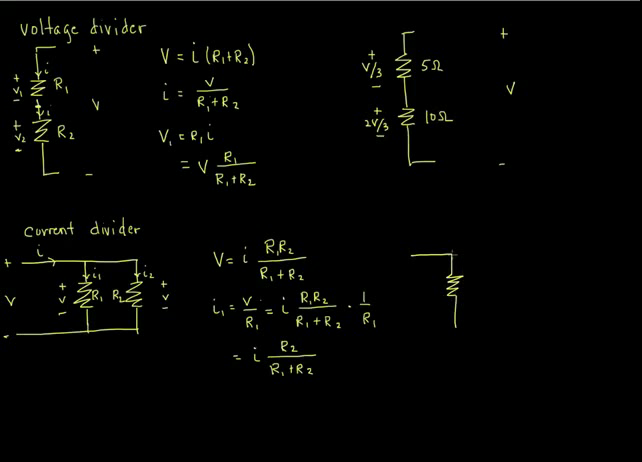 voltage divider
+
i
+ V₁ - R₁
V
i
+ V₂ - R₂
-
V = i (R₁+R₂)
i = V / (R₁+R₂)
V₁ = R₁ i
= V R₁ / (R₁+R₂)
+
+ V/3 - 5Ω
V
+ 2V/3 - 10Ω
-
current divider
i
+ i₁ i₂
V + V - R₁ R₂ + V -
-
V = i R₁R₂ / (R₁+R₂)
i₁ = V/R₁ = i R₁R₂ / (R₁+R₂) · 1/R₁
= i R₂ / (R₁+R₂)